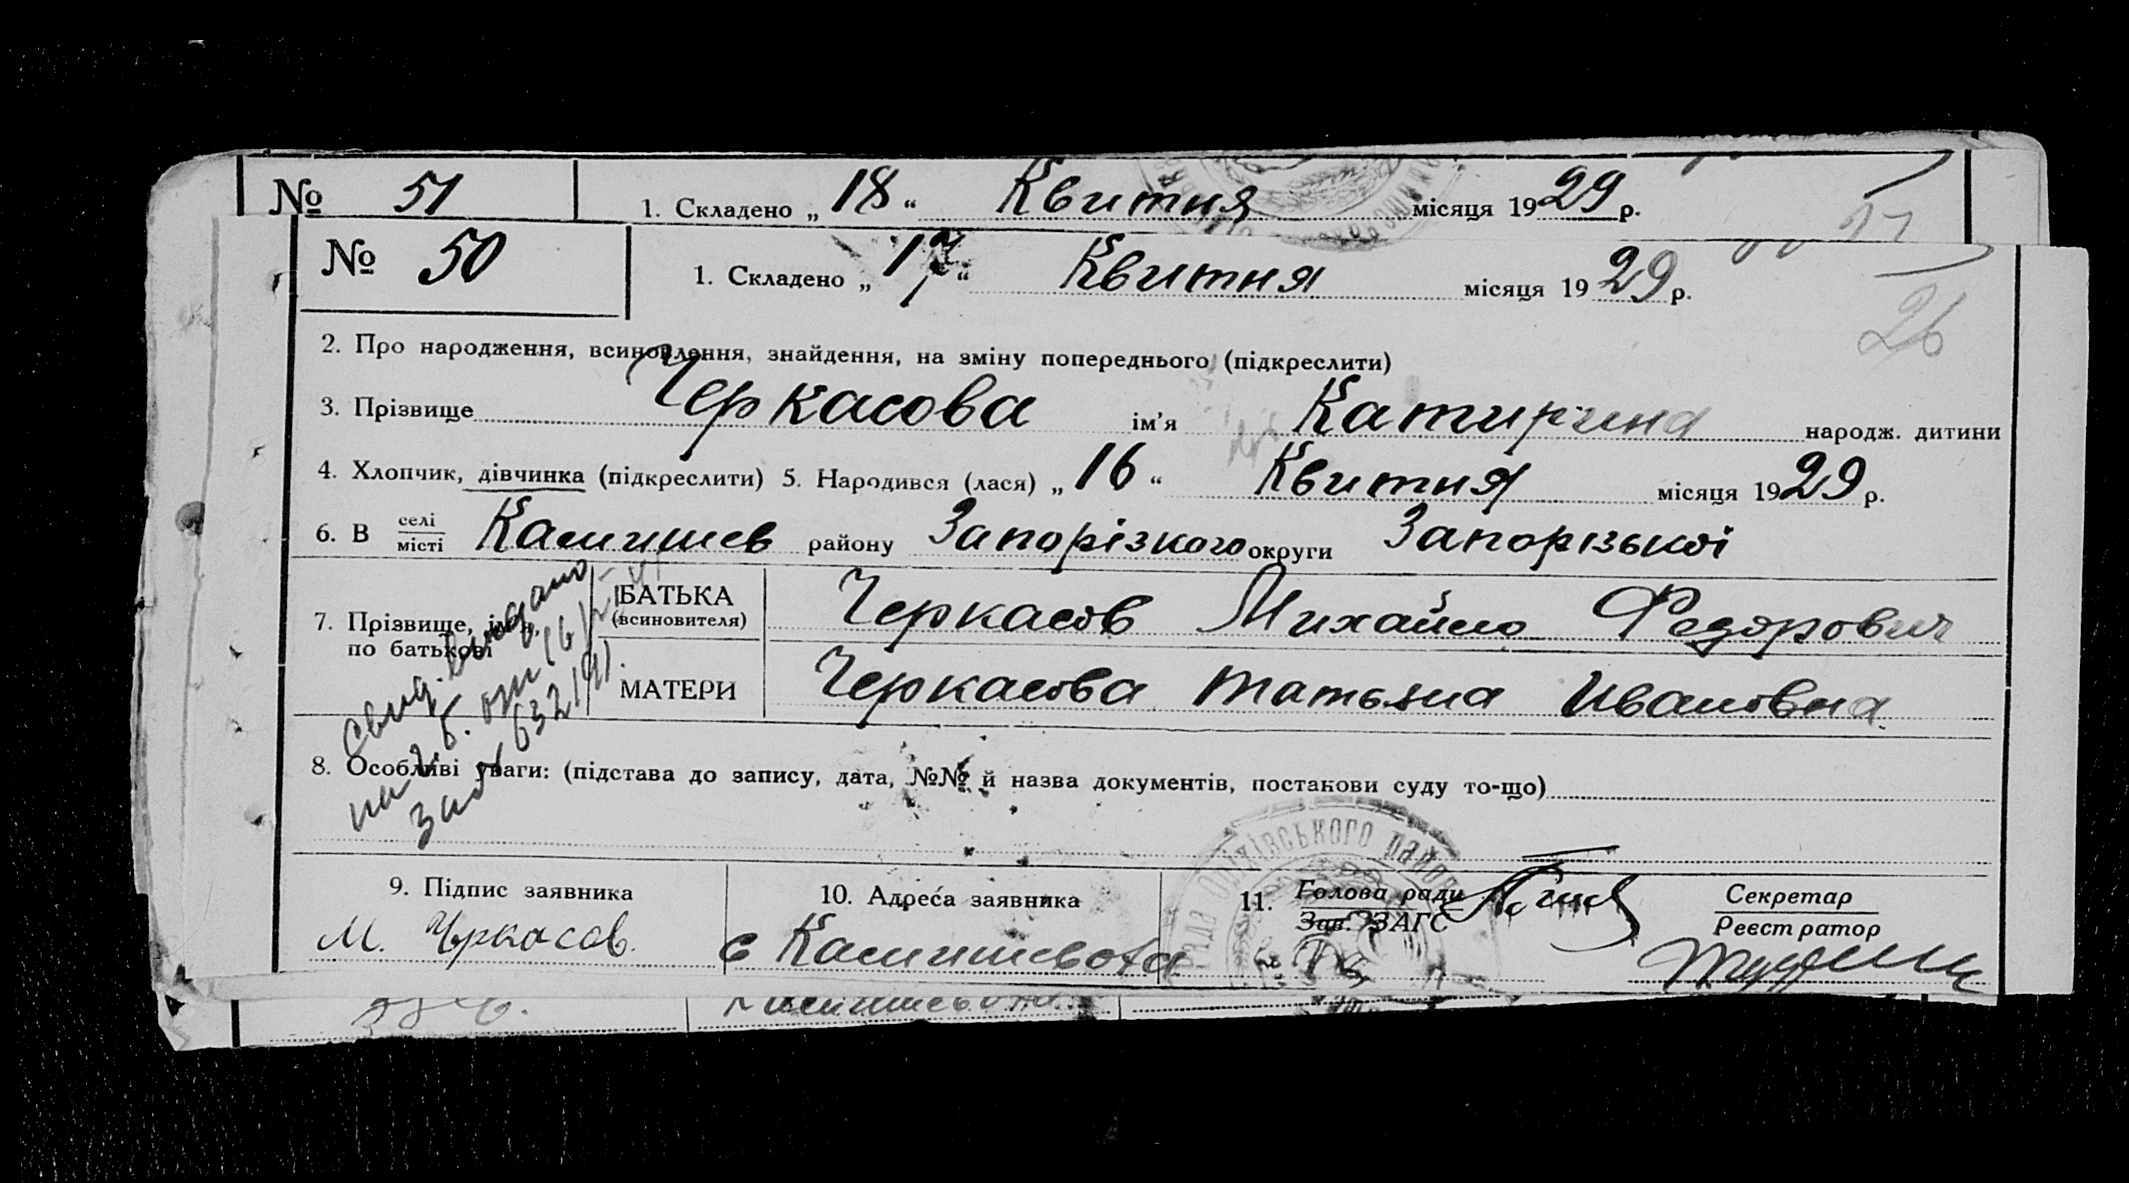 № 51 1. Складено „ 18 “ Квитня місяця 1929 р.
27
№ 50 1. Складено „ 17 “ Квитня місяця 1929 р.
26
2. Про народження, всиновлення, знайдення, на зміну попереднього (підкреслити)
3. Прізвище Черкасова ім’я Катирина народж. дитини
4. Хлопчик, дівчинка (підкреслити) 5. Народився (лася) „ 16 “ Квитня місяця 1929 р.
6. В селі місті Камишев району Запорізкого округи Запорізькоі
7. Прізвище, по батькові
БАТЬКА (всиновителя) Черкасов Михайло Федорович
МАТЕРИ Черкасова Татьяна Ивановна
Свид. выдано
на 2. б.
632191
8. Особливі уваги: (підстава до запису, дата, №№ й назва документів, постакови суду то-що)
9. Підпис заявника 10. Адреса заявника 11. Голова ради Зав. ЗАГС Секретар Реєстратор
М. Чркасов. с Камишеваха
Оріхівського район
Камишеваха